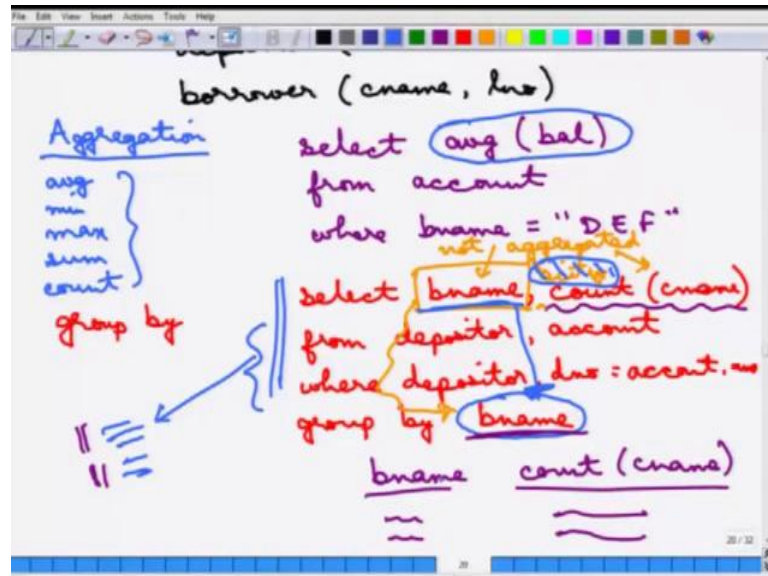 File Edit View Insert Actions Tools Help
borrower (cname, lno)
Aggregation
avg
min
max
sum
count
group by
select avg (bal)
from account
where bname = "DEF"
not aggregated
select bname, count (cname)
from depositor, account
where depositor dno = account.
group by bname
bname count (cname)
28 / 32
28